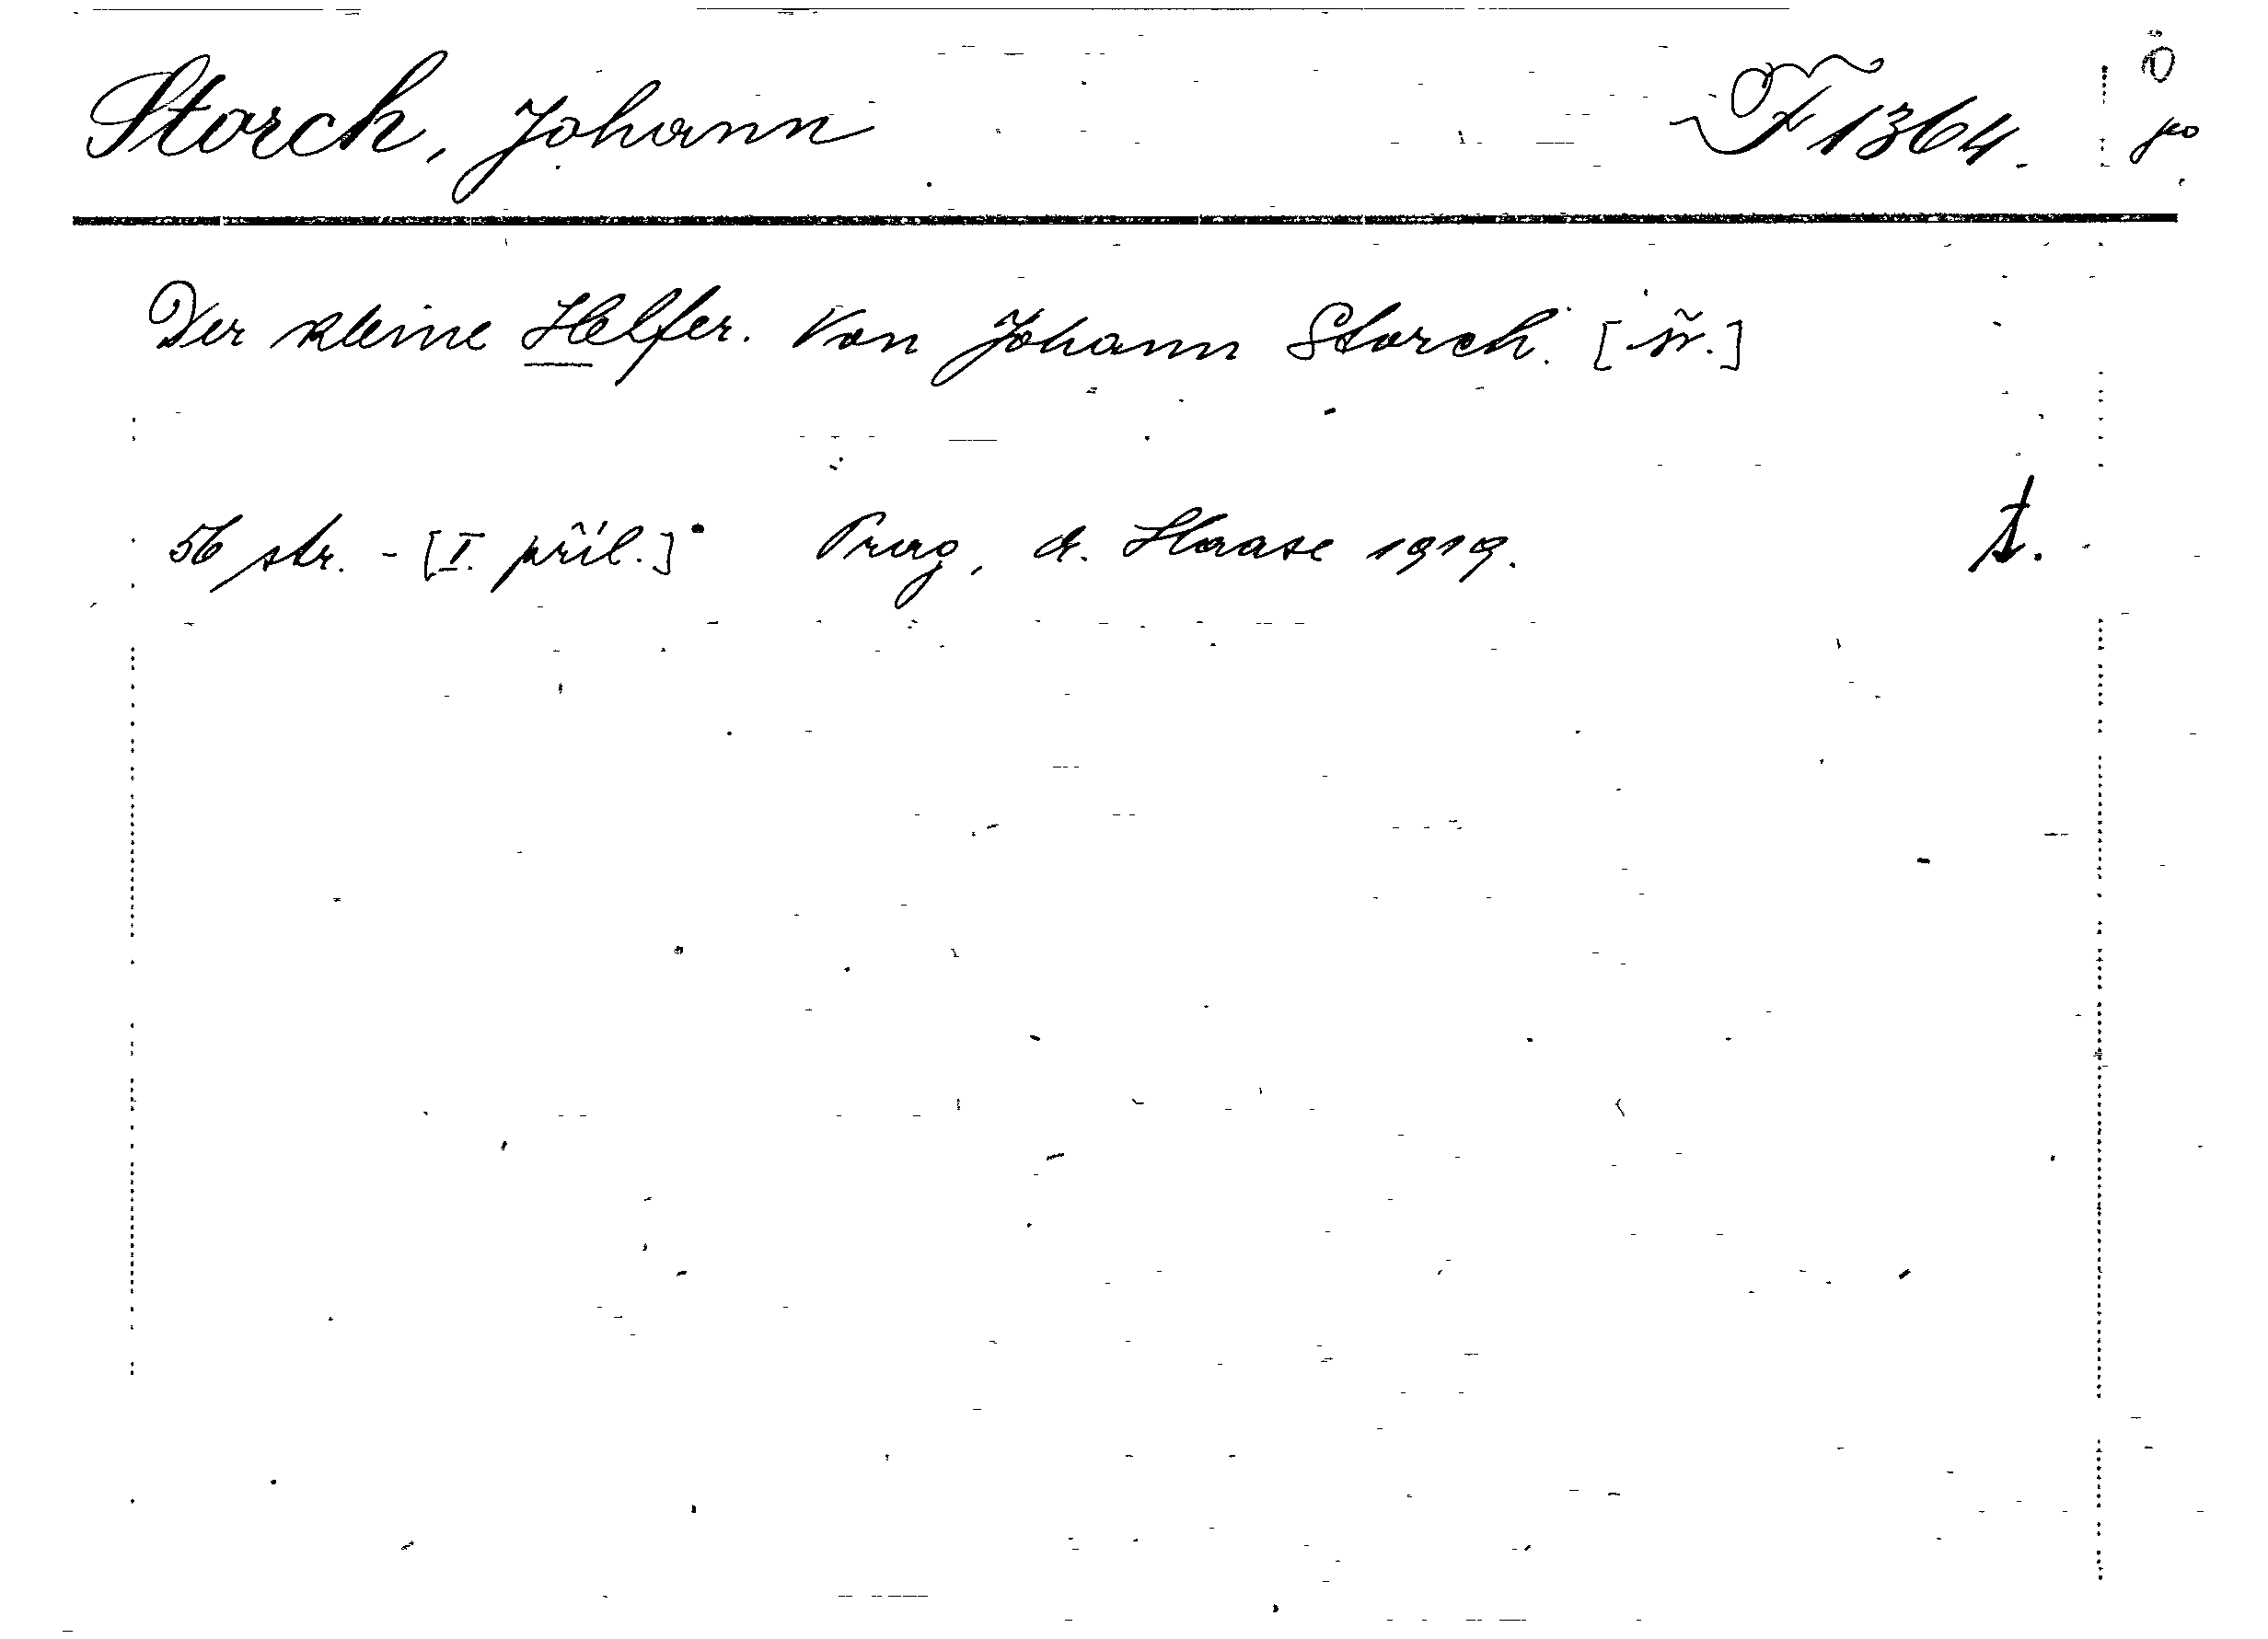 Storch, Johann F 1364.
Der kleine Helfer. Von Johann Storch.
56 str. - [I. příl.] Prag, A. Haase 1919.